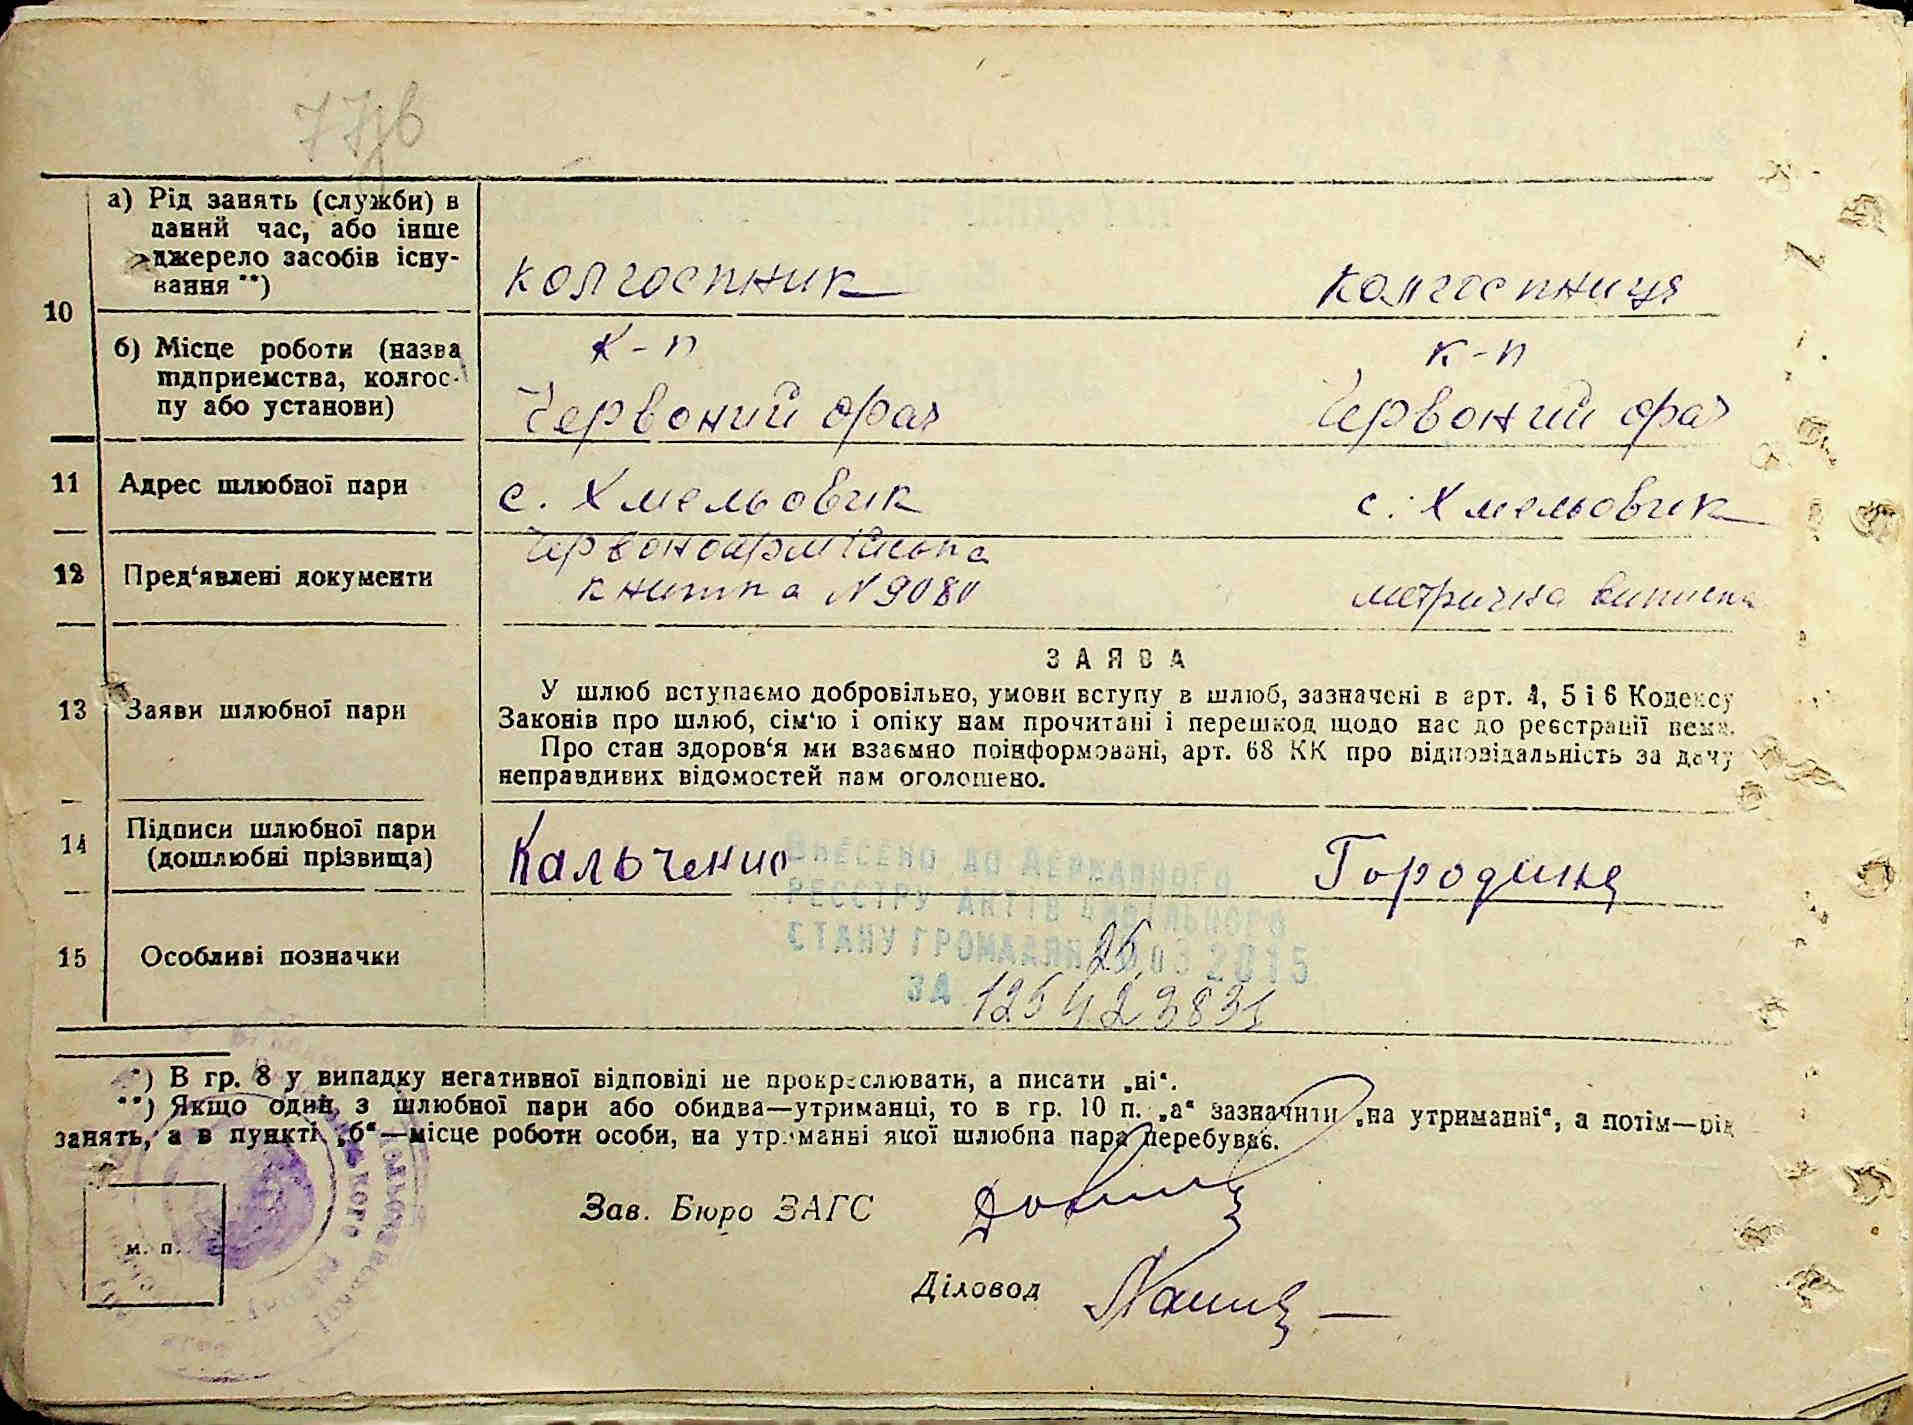 77зв
10
а) Рід занять (служби) в
даний час, або інше
джерело засобів існу-
вання **)
колгоспник
колгоспниця
б) Місце роботи (назва
підприємства, колгос-
пу або установи)
к-п
Червоний орач
к-п
Червоний орач
11
Адрес шлюбної пари
с. Хмельовик
с. Хмельовик
12
Пред'явлені документи
Червоноармійська
книжка N 9080
метрична виписка
13
Заяви шлюбної пари
ЗАЯВА
У шлюб вступаємо добровільно, умови вступу в шлюб, зазначені в арт. 4, 5 і 6 Кодексу
Законів про шлюб, сім'ю і опіку нам прочитані і перешкод щодо нас до реєстрації нема.
Про стан здоров'я ми взаємно поінформовані, арт. 68 КК про відповідальність за дачу
неправдивих відомостей нам оголошено.
14
Підписи шлюбної пари
(дошлюбні прізвища)
Кальченко
Городиня
15
Особливі позначки
ВНЕСЕНО ДО ДЕРЖАВНОГО
РЕЄСТРУ АКТІВ ЦИВІЛЬНОГО
СТАНУ ГРОМАДЯН 25 03 2015
ЗА 125423831
*) В гр. 8 у випадку негативної відповіді не прокреслювати, а писати „ні“.
**) Якщо один з шлюбної пари або обидва—утриманці, то в гр. 10 п. „а“ зазначити „на утриманні“, а потім—рід
занять, а в пункті „б“—місце роботи особи, на утриманні якої шлюбна пара перебуває.
Зав. Бюро ЗАГС
м. п.
Діловод